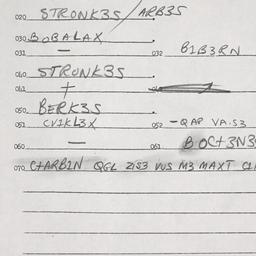 020 STRONK3S / ARB3S
030 BOBALAX
031 — 032 B1B3RN
040 STRONK3S
041 +
050 BERK3S
051 CV1KL3X 052 -QAP VA.S3
060 — 061 BOCT3N3
070 C+ARB1N QGL ZIS3 VUS M3 MAXT